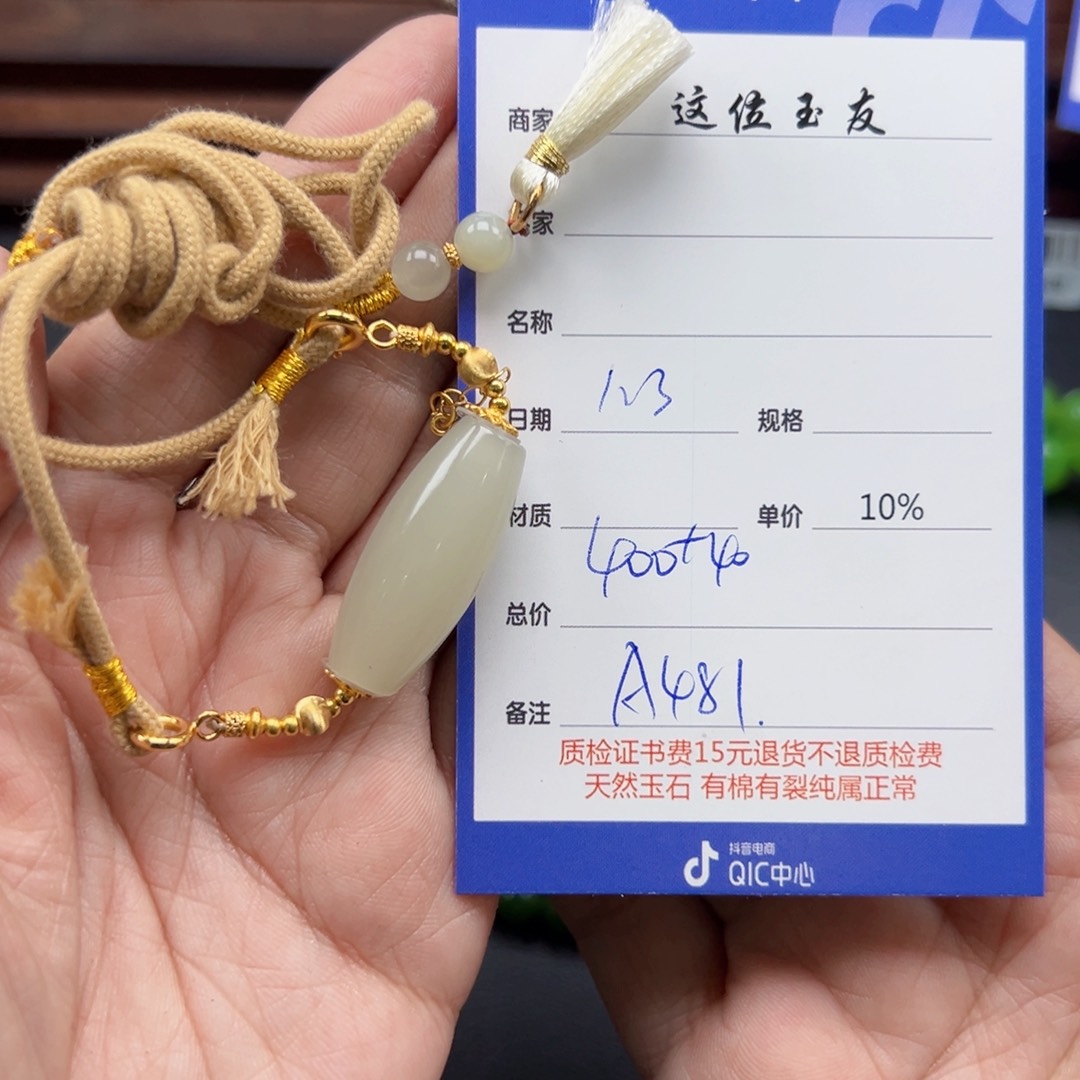 商家 这位玉友
家
名称
日期 123 规格
材质 单价 10%
400+40
总价
A481.
备注
质检证书费15元退货不退质检费
天然玉石 有棉有裂纯属正常
抖音电商
QIC中心